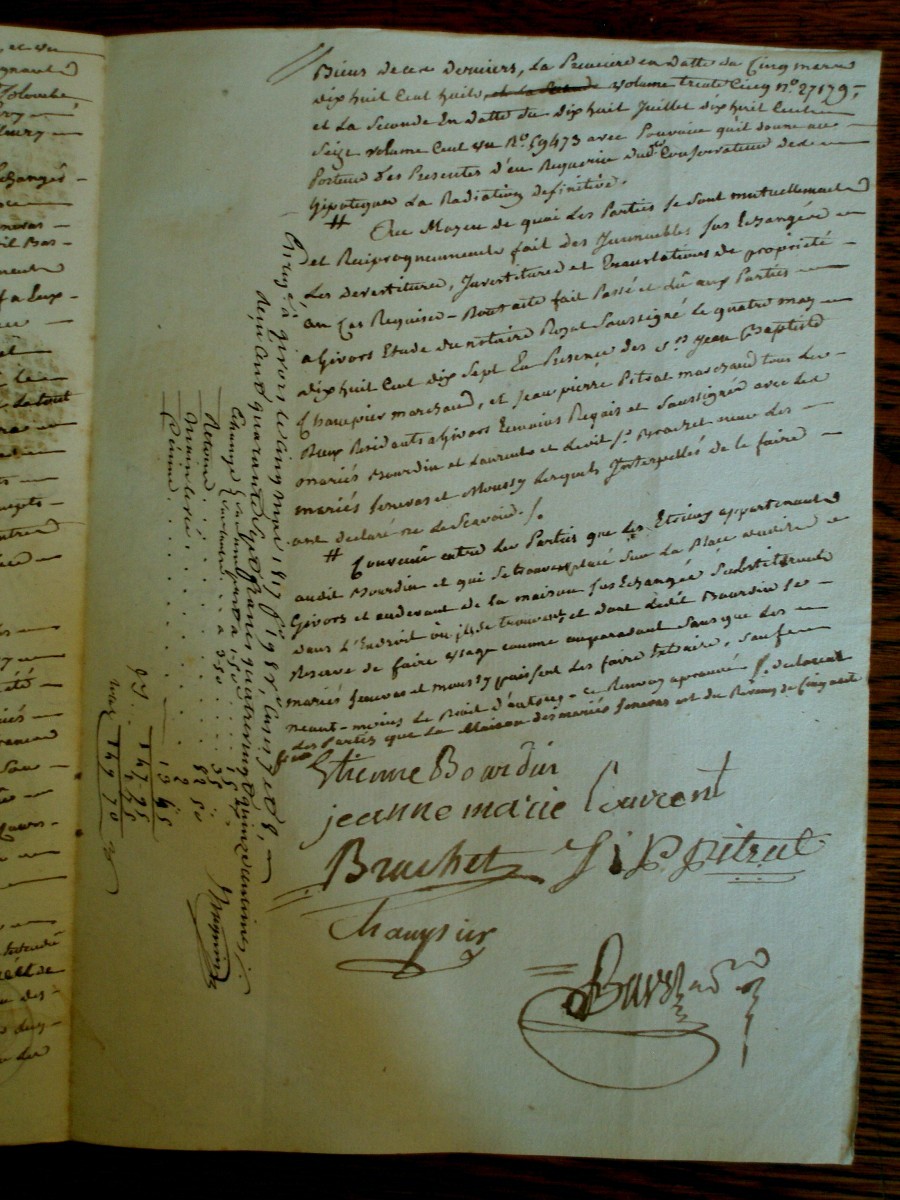 Biens de ces derniers, La Premiere en Datte du Cinq mars
dix huit Cent huit, volume trente Cinq N.o 27179,
et La Seconde En datte du dixhuit Juillet dix huit Cent
Seize volume Cent un N.o 59473 avec Pouvoir qu'il donne au
Porteur Des Presentes d'en Requerir dudt Conservateur des
hipoteques La Radiation definitive.
# Au Moyen de quoi Les Parties se Sont mutuellement
et Reciproquement fait des Immeubles Sus Echangés
Les devestitures, Investitures et Translatives de propriété
au Cas Requises - Dont acte fait Passé et dû aux Parties
a Givors Etude du notaire Royal Soussigné Le quatre may
dix huit Cent dix Sept En Presence des S.rs Jean Baptiste
Champier marchand, et Jean pierre Pitrat marchand tous Les
Deux Residants a Givors Temoins Requis et Soussignés avec Les
mariés Bourdin et Laurent et Ledit S.r Brachet non Les
mariés fonevas et Moussy Lesquels Interpellés de le faire
ont declaré ne Le Scavoir ./.
# Convenu entre Les Parties que Les appartenant
audit Bourdin et qui Se trouvent placé Sur La Place
Givors et audevant de la maison Sus Echangée
dans L'Endroit où ils Se trouvent et dont Ledit Bourdin Se
Reserve de faire usage comme auparadant Sans que Les
mariés fonevas et moussy puissent Les faire Extraire, Sauf
neant-moins Le Droit d'autruy - Ce Renvoy aprouvé declarent
Les Parties que La Maison des mariés fonevas est du Revenu de Cinquante
Etienne Bourdin
jeanne marie Laurent
Brachet J P Pitrat
Champier
à givors le cinq mai 1817 f.o 198
quarante Sept francs quatre vingt quinze centimes
Retour
149 70